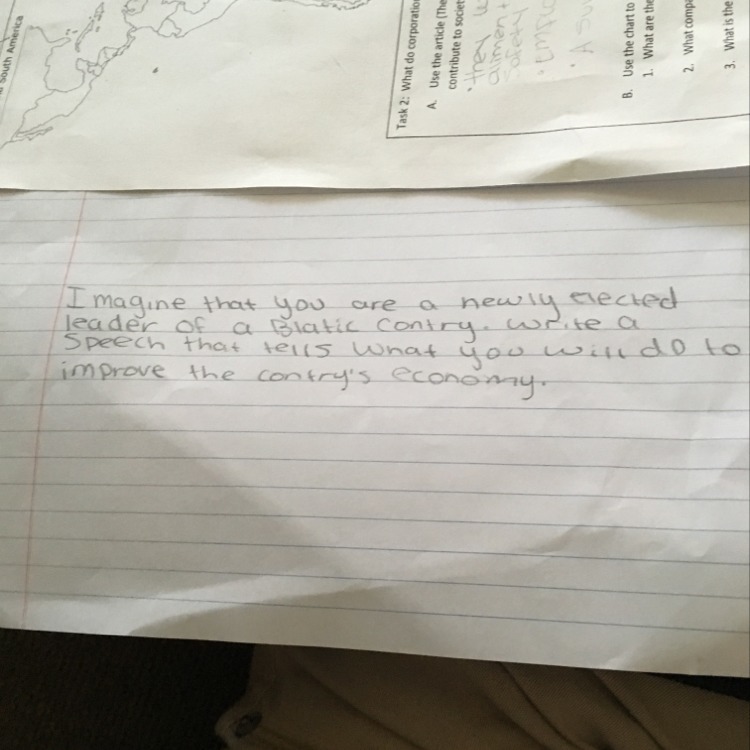 South America
Task 2: What do corporation
A. Use the article (The
contribute to societ
B. Use the chart to
1. What are the
2. What compa
3. What is the
Imagine that you are a newly elected
leader of a Blatic contry. write a
Speech that tells what you will do to
improve the contry's economy.